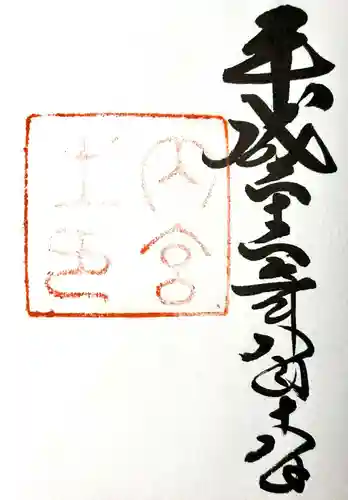 平成二十三年八月十八日
内宮
之印